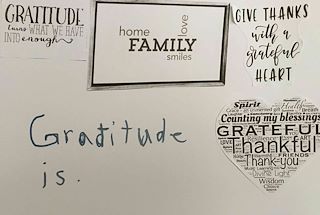 GRATITUDE
TURNS WHAT WE HAVE
INTO enough
home
love
FAMILY
smiles
GIVE THANKS
with a
grateful
HEART
Spirit
Counting my blessings
GRATEFUL
Thankful
FRIENDS
Thank-you
Living Light
Wisdom
Gratitude
is.